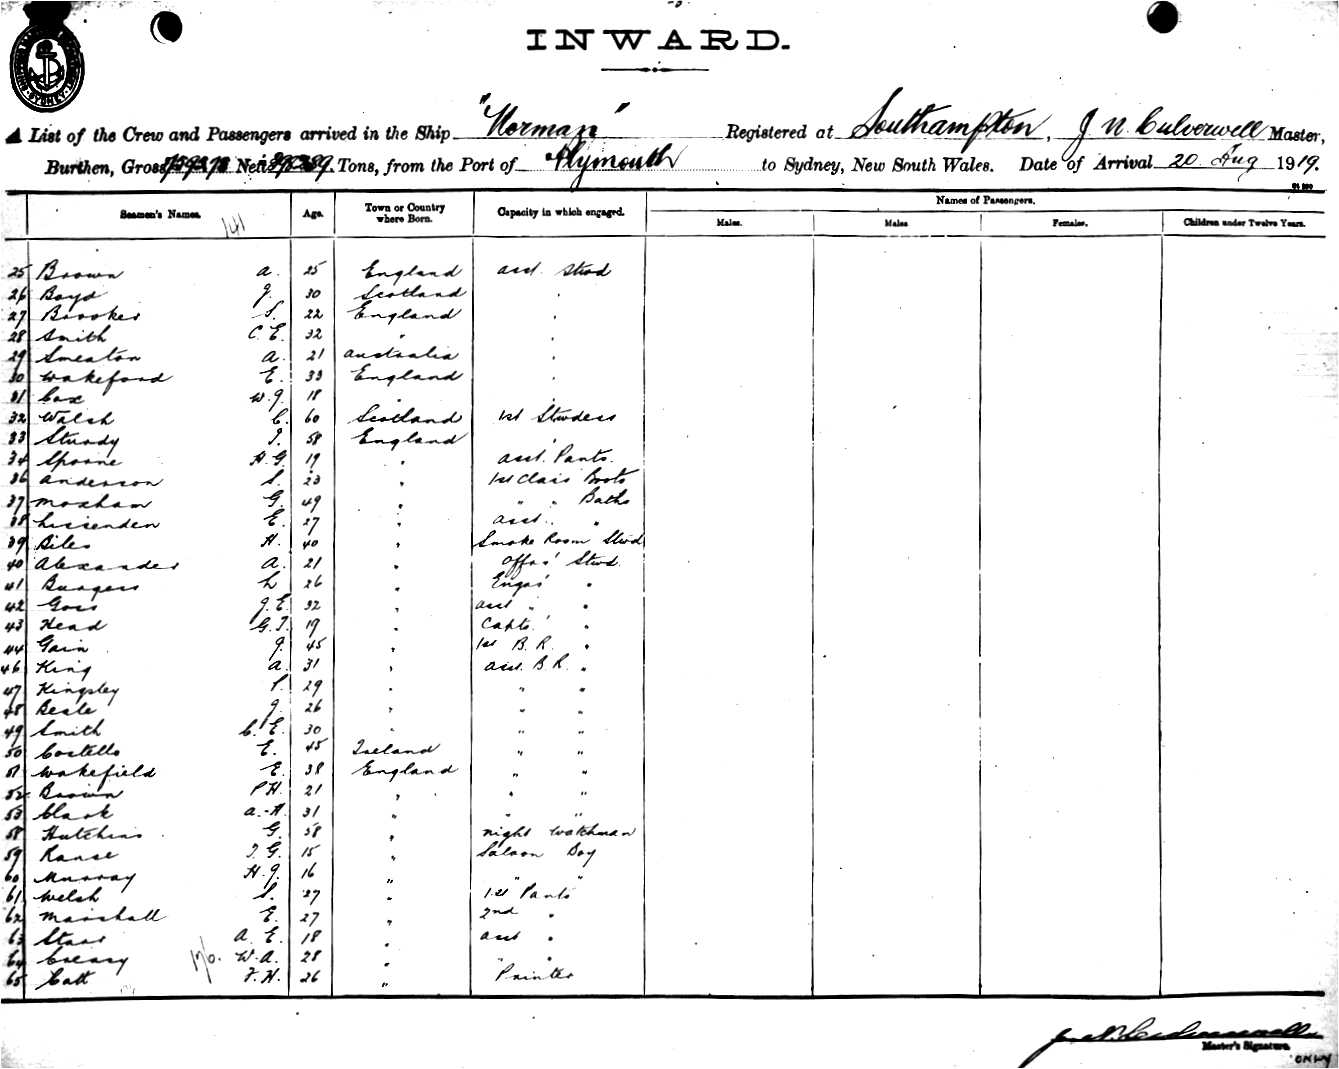 INWARD.
A List of the Crew and Passengers arrived in the Ship "Norman" Registered at Southampton, J N Culverwell Master,
Burthen, Gross Nett Tons, from the Port of Plymouth to Sydney, New South Wales. Date of Arrival 20 Aug 1919.
Seamen's Names. Age. Town or Country where Born. Capacity in which engaged. Names of Passengers.
Males. Males Females. Children under Twelve Years.
141
25 Brown A. 25 England asst. Stwd
26 Boyd J. 30 Scotland "
27 Brooker S. 22 England "
28 Smith C. E. 32 " "
29 Smeaton A. 21 Australia "
30 Wakeford E. 33 England "
31 Cox W. J. 18 " "
32 Walsh C. 60 Scotland 1st Stwdess
33 Sturdy T. 58 England "
34 Spoone H. G. 19 " asst. Pants.
36 Anderson S. 23 " 1st Class Boots
37 Moxham G. 49 " " " Baths
38 Lissenden E. 27 " asst. "
39 Biles H. 40 " Smoke Room Stwd
40 Alexander A. 21 " Offrs' Stwd.
41 Burgess L 26 " Engrs' "
42 Goss J. E. 32 " asst " "
43 Head G. T. 19 " Capts' "
44 Gain J. 45 " 1st B. R. "
46 King A. 31 " asst. B R. "
47 Kingsley 29 " " "
48 Beale J. 26 " " "
49 Smith C. E. 30 " " "
50 Costello E. 45 Ireland " "
51 Wakefield E. 38 England " "
52 Brown P H. 21 " " "
53 Clark A. H. 31 " " "
58 Hutchins G. 58 " night Watchman
59 Ranse T. G. 15 " Saloon Boy
60 Murray H. J. 16 " " "
61 Welsh S. 27 " 1st Pants
62 Marshall E. 27 " 2nd "
63 Starr A. E. 18 " asst "
64 Creasy W. A. 28 " " "
65 Catt F. H. 26 " Printer
J N Culverwell
Master's Signature.